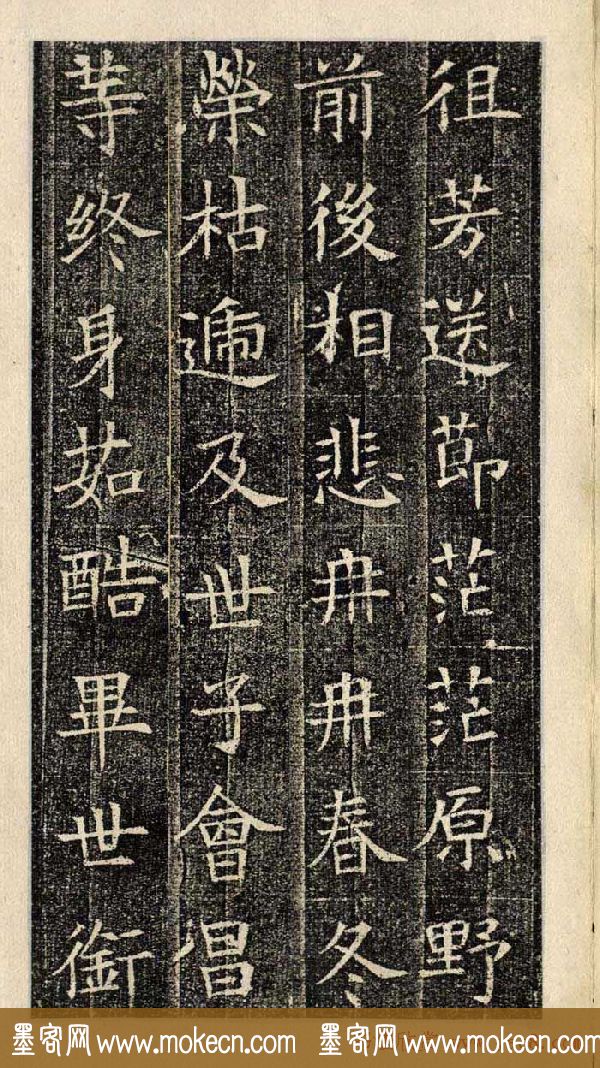 徂芳送節茫茫原野
前後相悲冉冉春冬
榮枯遞及世子會倡
等終身茹酷畢世銜
墨客网 www.mokecn.com 墨客网 www.mokecn.com